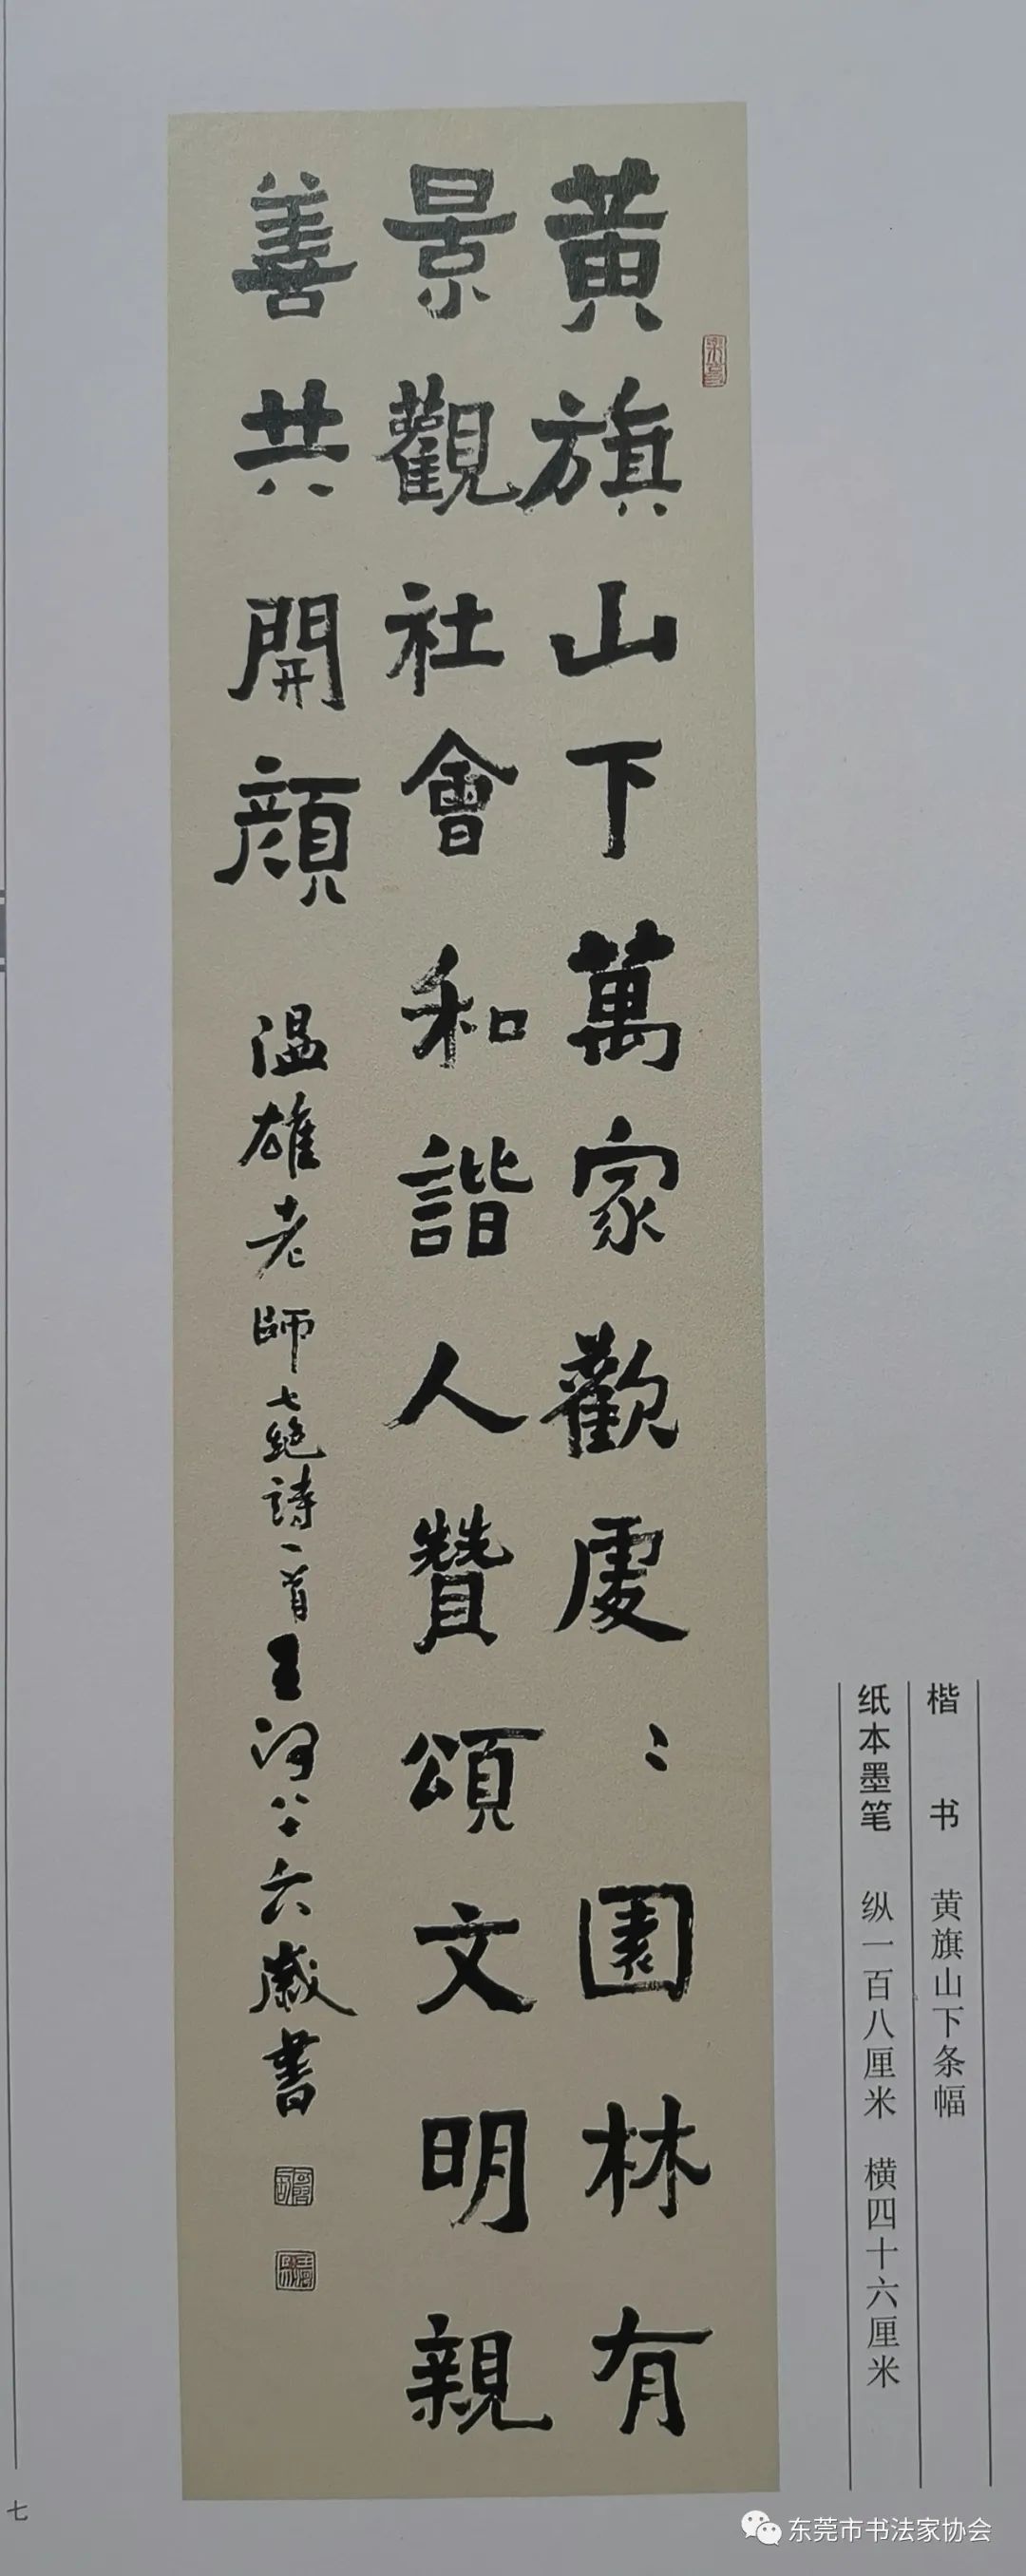 黃旗山下萬家歡處〻園林有
景觀社會和諧人贊頌文明親
善共開顏
温雄老師七絕詩一首王河八十六歲書
楷 书 黄旗山下条幅
纸本墨笔 纵一百八厘米 横四十六厘米
七
东莞市书法家协会